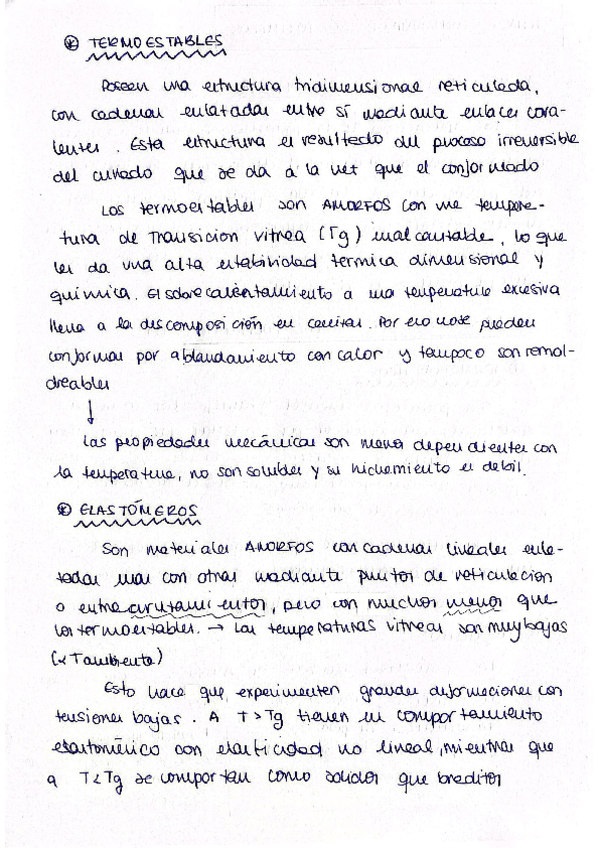 ⊛ TERMOESTABLES
Poseen una estructura tridimensional reticulada,
con cadenas enlazadas entre sí mediante enlaces cova-
lentes. Esta estructura es resultado del proceso irreversible
del curado que se da a la vez que el conformado
Los termoestables son AMORFOS con una tempera-
tura de Transicion vitrea (Tg) inalcanzable, lo que
les da una alta estabilidad termica dimensional y
química. El sobrecalentamiento a una temperatura excesiva
lleva a la descomposición en cenizas. Por eso no se pueden
conformar por ablandamiento con calor y tampoco son remol-
dreables
↓
Las propiedades mecánicas son menos dependientes con
la temperatura, no son solubles y su hichamiento es debil.
⊛ ELASTÓMEROS
Son materiales AMORFOS con cadenas lineales enla-
zadas unas con otras mediante puntos de reticulacion
o entrecruzamientos, pero con muchos menos que
los termoestables. → Las temperaturas vitreas son muy bajas
(< Tambiente)
Esto hace que experimenten grandes deformaciones con
tensiones bajas. A T > Tg tienen un comportamiento
elastomérico con elasticidad no lineal, mientras que
a T < Tg se comportan como solidos quebradizos